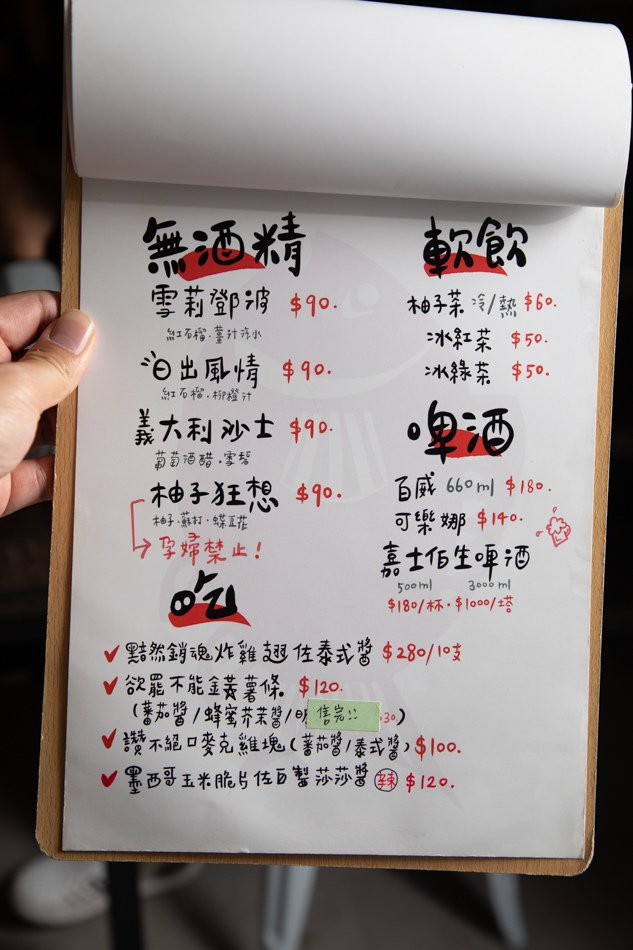 無酒精
雪莉鄧波 $90.
紅石榴.薑汁汽水
日出風情 $90.
紅石榴.柳橙汁
義大利沙士 $90.
葡萄酒醋.雪碧
柚子狂想 $90.
柚子.蘇打.蝶豆花
孕婦禁止!
軟飲
柚子茶 冷/熱 $60.
冰紅茶 $50.
冰綠茶 $50.
啤酒
百威 660ml $180.
可樂娜 $140.
嘉士伯生啤酒
500ml 3000ml
$180/杯.$1000/塔
吃
黯然銷魂炸雞翅佐泰式醬 $280/10支
欲罷不能黃金薯條. $120.
(蕃茄醬/蜂蜜芥茉醬/明 售完!! 30.)
讚不絕口麥克雞塊(蕃茄醬/泰式醬) $100.
墨西哥玉米脆片佐自製莎莎醬 辣 $120.